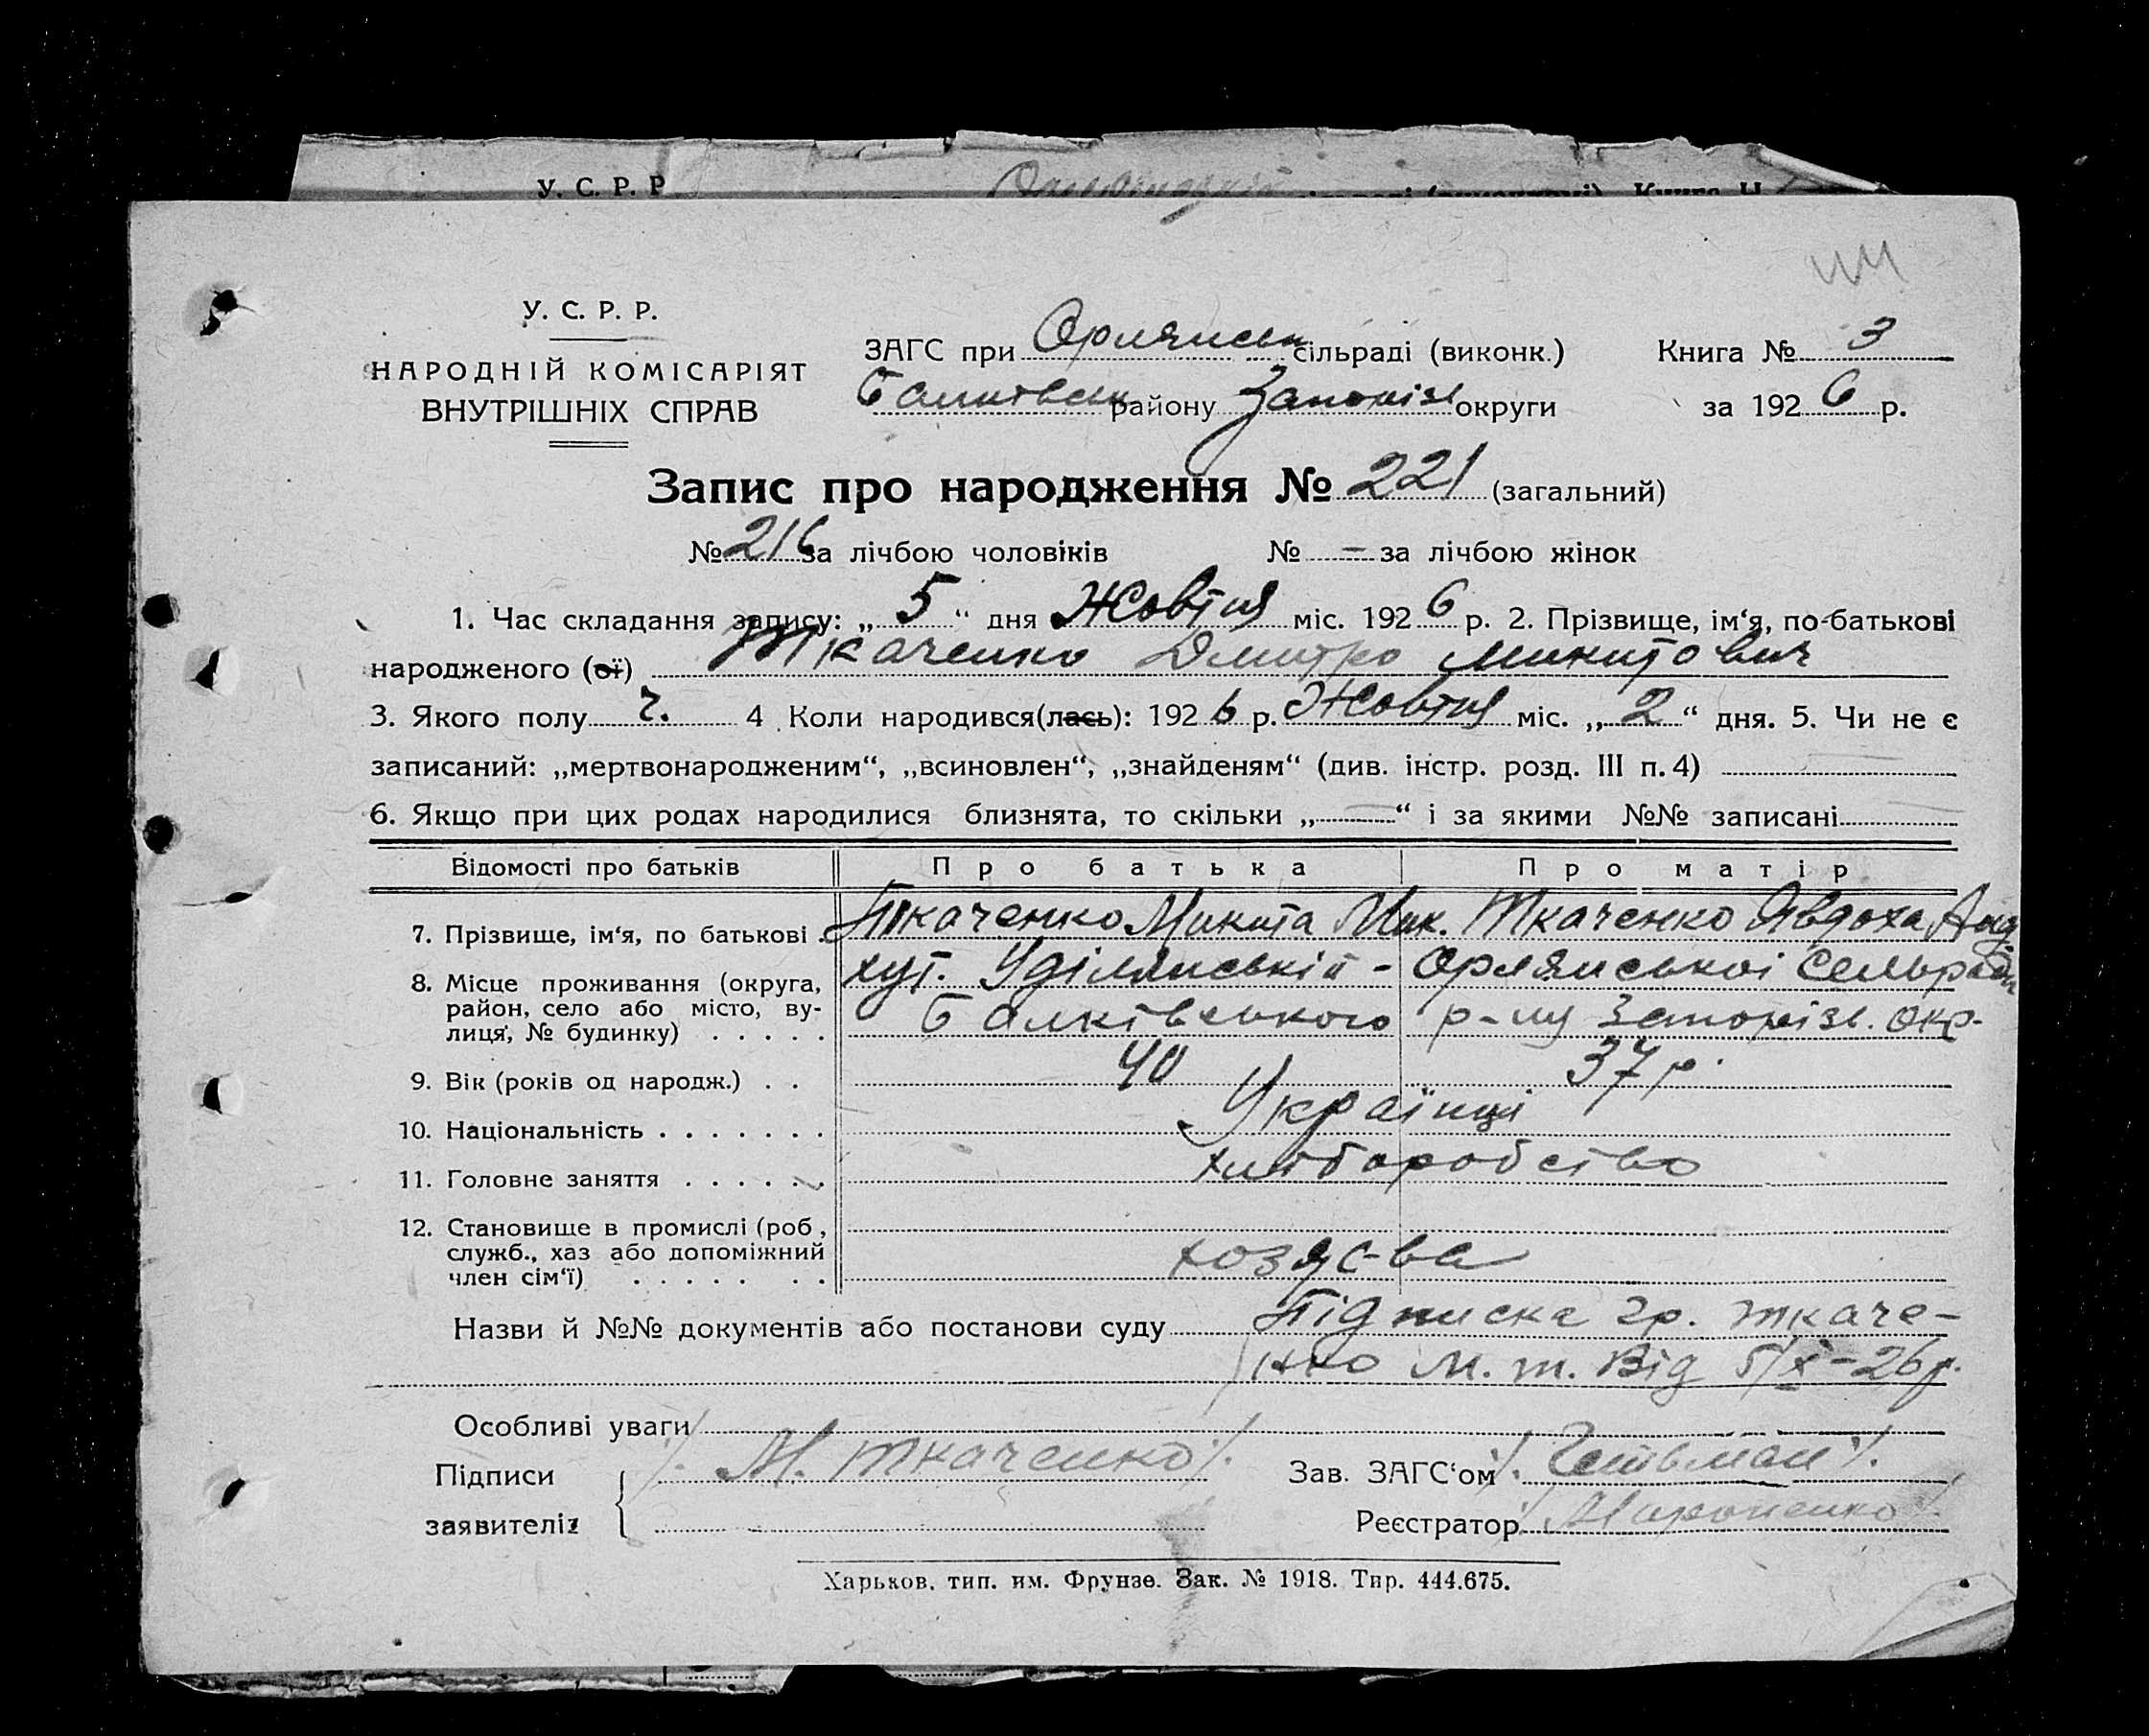 У. С. Р. Р
У. С. Р. Р.
НАРОДНІЙ КОМІСАРІЯТ
ВНУТРІШНІХ СПРАВ
ЗАГС при Орлянськ сільраді (виконк.) Книга № 3
Балківськ району Запоріз округи за 1926 р.
Запис про народження № 221 (загальний)
№ 216 за лічбою чоловіків № – за лічбою жінок
1. Час складання запису: „5“ дня Жовтня міс. 1926 р. 2. Прізвище, ім‘я, по-батькові
народженого (ої) Ткаченко Дмитро Микитович
3. Якого полу ч. 4. Коли народився(лась): 1926 р. Жовтня міс. „2“ дня. 5. Чи не є
записаний: „мертвонародженим“, „всиновлен“, „знайденям“ (див. інстр. розд. III п. 4)
6. Якщо при цих родах народилися близнята, то скільки „—“ і за якими №№ записані
Відомості про батьків Про батька Про матір
7. Прізвище, ім‘я, по батькові Ткаченко Микита Мик. Ткаченко Явдоха Анд
8. Місце проживання (округа, хут. Уділянській - Орлянської Сельради
район, село або місто, ву-
лиця, № будинку) Балківського р-ну Запорізь. окр.
9. Вік (років од народж.) 40 37 р.
10. Національність Українці
11. Головне заняття хліборобство
12. Становище в промислі (роб.,
служб., хаз або допоміжний
член сім‘ї) хозяє-ва
Назви й №№ документів або постанови суду Підписка гр. Ткаче-
нко М. т. Від 5/X-26 р.
Особливі уваги
Підписи /. М. Ткаченко /. Зав. ЗАГС‘ом /. Гетьман /.
заявителів Реєстратор /. Мироненко /.
Харьков, тип. им. Фрунзе. Зак. № 1918. Тир. 444.675.